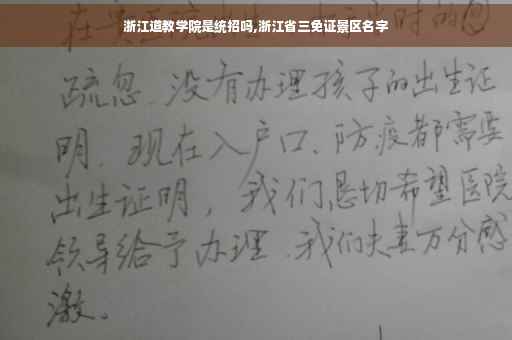 浙江道教学院是统招吗,浙江省三免证景区名字
疏忽.没有办理孩子的出生证
明.现在入户口、防疫都需要
出生证明，我们恳切希望医院
领导给予办理.我们夫妻万分感
激。